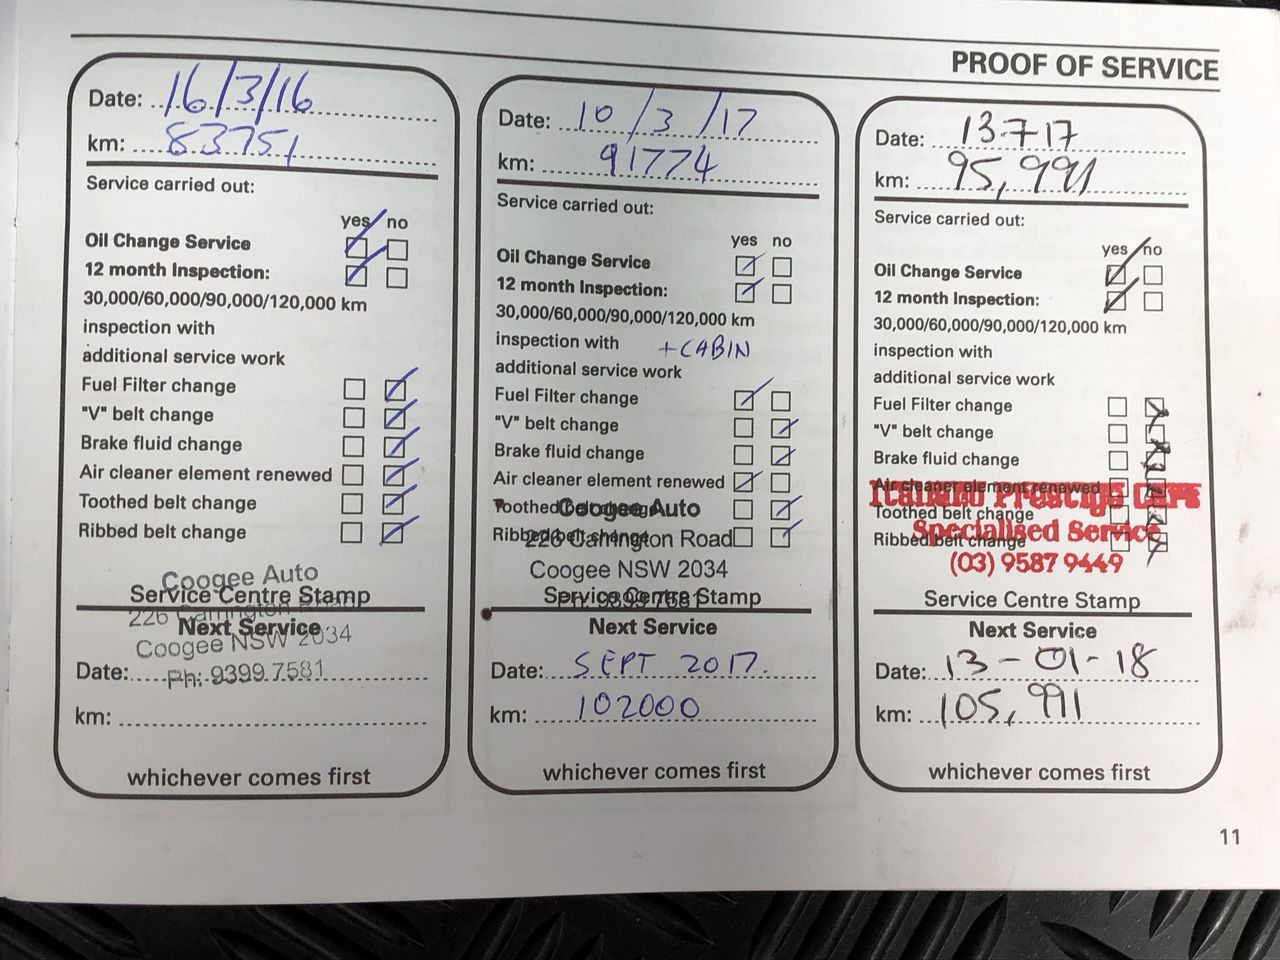 PROOF OF SERVICE
Date: 16/3/16
km: 83751
Service carried out:
yes no
Oil Change Service
12 month Inspection:
30,000/60,000/90,000/120,000 km
inspection with
additional service work
Fuel Filter change
"V" belt change
Brake fluid change
Air cleaner element renewed
Toothed belt change
Ribbed belt change
Coogee Auto
Service Centre Stamp
226 Carrington Road
Next Service
Coogee NSW 2034
Date:
Ph: 9399 7581
km:
whichever comes first
Date: 10/3/17
km: 91774
Service carried out:
yes no
Oil Change Service
12 month Inspection:
30,000/60,000/90,000/120,000 km
inspection with +CABIN
additional service work
Fuel Filter change
"V" belt change
Brake fluid change
Air cleaner element renewed
Toothed belt change
Coogee Auto
Ribbed belt change
226 Carrington Road
Coogee NSW 2034
Service Centre Stamp
Ph: 9399 7581
Next Service
Date: SEPT 2017.
km: 102000
whichever comes first
Date: 13-7-17
km: 95,991
Service carried out:
yes no
Oil Change Service
12 month Inspection:
30,000/60,000/90,000/120,000 km
inspection with
additional service work
Fuel Filter change
"V" belt change
Brake fluid change
Air cleaner element renewed
Italiano Prestige Cars
Toothed belt change
Specialised Service
Ribbed belt change
(03) 9587 9449
Service Centre Stamp
Next Service
Date: 13-01-18
km: 105,991
whichever comes first
11